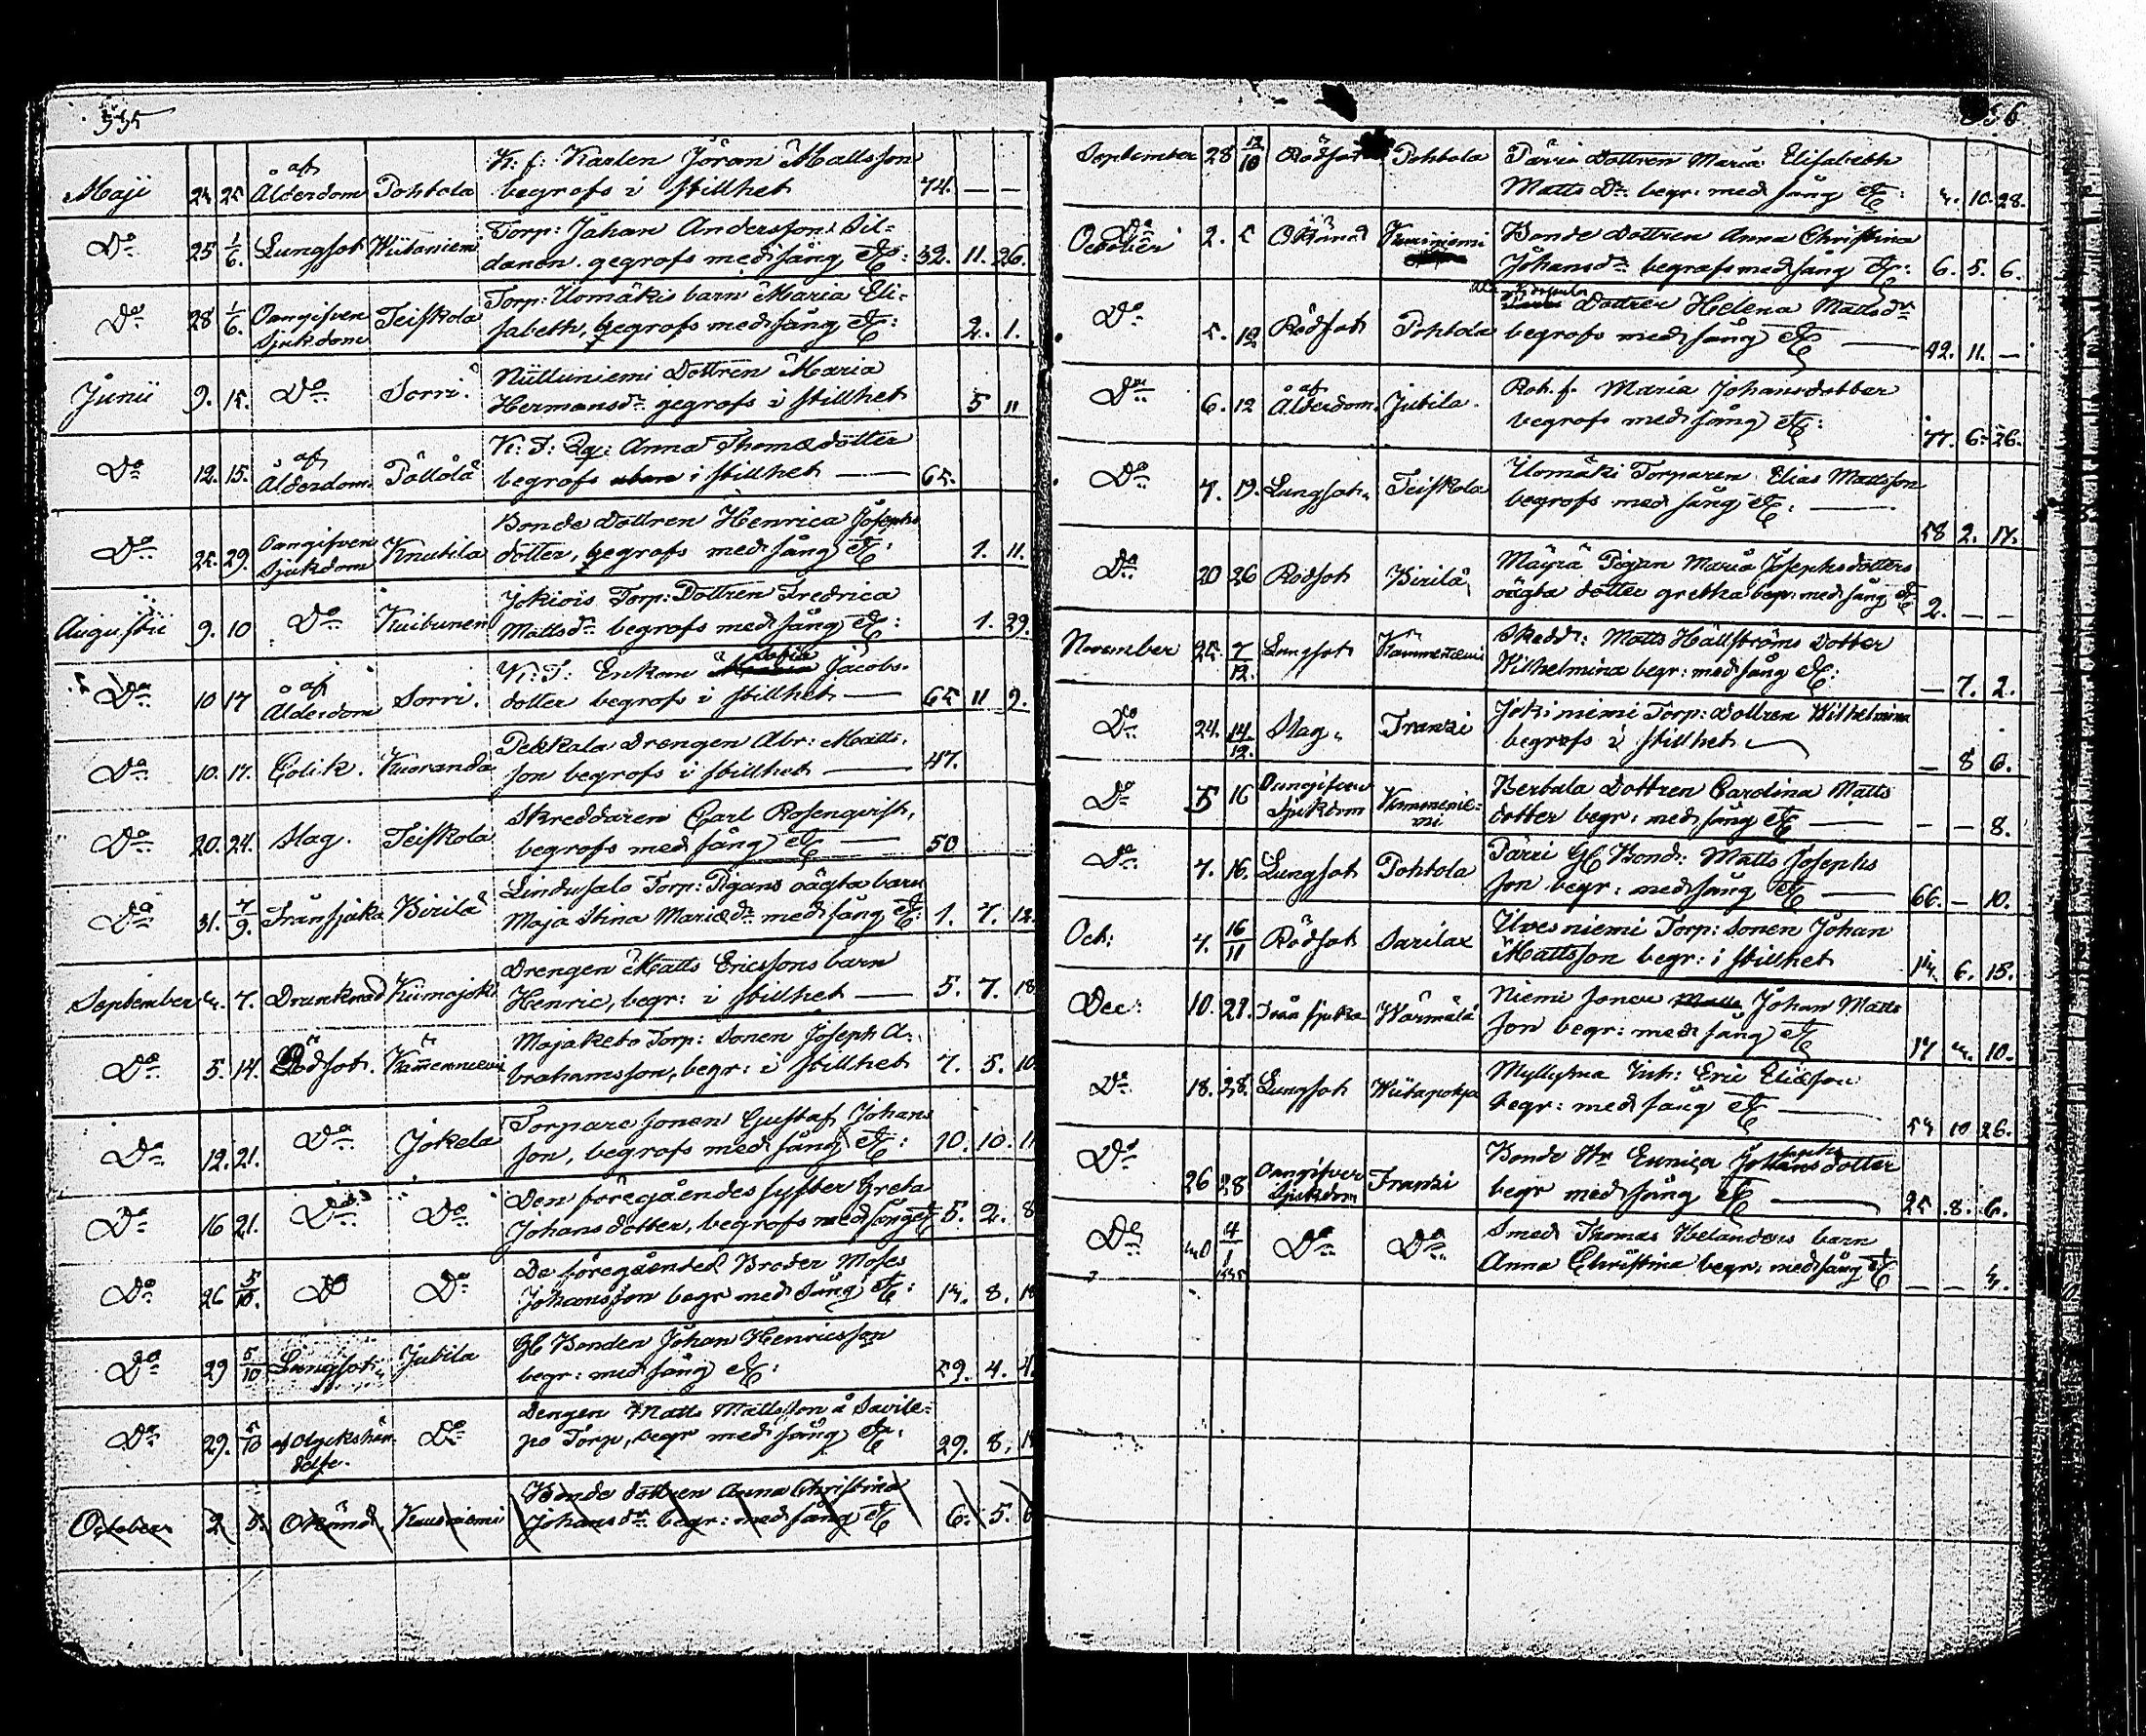 335
Maji 24 25 af Ålderdom Pohtola K: f: Karlen Jöran Mattsson
begrofs i stillhet 74. — —
Do 25 1/6. Lungsot Wiitaniem Torp: Johan Andersson Sil-
danen. gegrofs med sång etc: 32. 11. 26.
Do 28 1/6. Oangifven Sjukdom Teiskola Torp: Uomäkis barn Maria Eli-
sabeth, begrofs med sång etc: 2. 1.
Junii 9. 15. Do Sorri. Niittuniemi Dottren Maria
Hermansdr gegrofs i stillhet 5 11
Do 12. 15. af Ålderdom. Pällölä K: I: Anna Thomædotter
begrofs utan i stillhet — 65.
Do 25. 29. Oangifven Sjukdom Knutila Bonde Dottren Henrica Josephs
dotter, begrofs med sång etc: 1. 11.
Augusti 9. 10 Do Kuibunen Jokiois Torp: Dottren Fredrica
Mattsdr begrofs med sång etc: 1. 29.
Do 10 17 af Ålderdom Sorri. K: I: Enkan Sofia Jacobs-
dotter begrofs i stillhet — 65 11 9.
Do 10. 17. Colik. Kuoranda Pekkala Drengen Abr: Matts-
son begrofs i stillhet — 47.
Do 20. 24. Slag. Teiskola Skreddaren Carl Rosenqvist,
begrofs med sång etc — 50
Do 31. 7/9. Trånsjuka Kirilä Lindusalo Torp: Pigans oägta barn
Maja Stina Mariædr med sång etc: 1. 7. 12
September 4. 7. Drunknad Kiimajoki Drengen Matts Ericssons barn
Henric, begr: i stillhet — 5. 7. 18
Do 5. 14. Rödsot. Kämmenniemi Majaketo Torp: Sonen Joseph A-
brahamsson, begr: i stillhet 7. 5. 10
Do 12. 21. Do Jokela Torpare sonen Gustaf Johans
son, begrofs med sång etc: 10. 10. 11
Do 16 21. Do Do Den föregåendes syster Greta
Johansdotter, begrofs med sång etc 5. 2. 8
Do 26 5/10. Do Do De föregåendes Broder Moses
Johansson begr med Sång etc: 14. 8. 18
Do 29 5/10 Lungsot Jutila Gl Bonden Johan Henricsson
begr: med sång etc: 59. 4. 4
Do 29. 5/10 af Olyckshän delse. Do Drengen Matts Mattsson å Savile-
po Torp, begr med sång etc. 29. 8.
October 2. 5. Okänd. Kauniemi Bonde dottren Anna Christina
Johansdr begr: med sång etc 6. 5. 6
336
September 28 12/10 Rödsot Pohtola Pärri Dottren Maria Elisabeth
Matts Dr begr: med sång etc: 4. 10. 28.
October 2. 5 Okänd Kauniemi Bonde Dottren Anna Christina
Johansdr begrofs med sång etc: 6. 5. 6.
Do 5. 12 Rödsot Pohtola Dottren Helena Mattsdr
begrofs med sång etc — 42. 11. —
Do 6. 12 af Ålderdom. Jutila. Rot. f. Maria Johansdotter
begrofs med sång etc: 77. 6. 26.
Do 7. 19. Lungsot Teiskola Uomäki Torparen Elias Mattsson
begrofs med sång etc: — 58 2. 17.
Do 20 26 Rödsot Kirilä Mäyrä Pigan Maria Josephsdotters
oägta dotter gretha begr: med sång etc 2. — —
November 25. 7/12. Lungsot Kämmenniemi Skedd: Matts Hällströms Dotter
Wilhelmina begr: med sång etc: — 7. 2.
Do 24. 14/12. Slag Franzi Jokinimi Torp: Dottren Wilhelmina
begrofs i stillhet — 8 6.
Do 5 16 Oangifven Sjukdom Kämmenie-
mi Kerbala Dottren Carolina Matts
dotter begr: med sång etc — — — 8.
Do 7. 16. Lungsot Pohtola Pärri Gl Bond: Matts Josephs
son begr: med sång etc — 66. — 10.
Oct: 7. 16/11 Rödsot Sarilax Ilvesniemi Torp: Sonen Johan
Mattsson begr: i stillhet 14. 6. 15.
Dec: 10. 21. Trånsjuka Wärmälä Niemi Sonen Matts Johan Matts
son begr: med sång etc 17 4. 10.
Do 18. 28. Lungsot Wiitapohja Myllyhna Inh: Eric Eliæson
begr: med sång etc — 54 10 26.
Do 26 28 Oangifven Sjukdom Franzi Bonde Hr Eunica Josephs dotter
begr med sång etc — 25 8. 6.
Do 30 4/1 1835 Do Do Smed Thomas Helanders barn
Anna Christina begr: med sång etc — — 4.